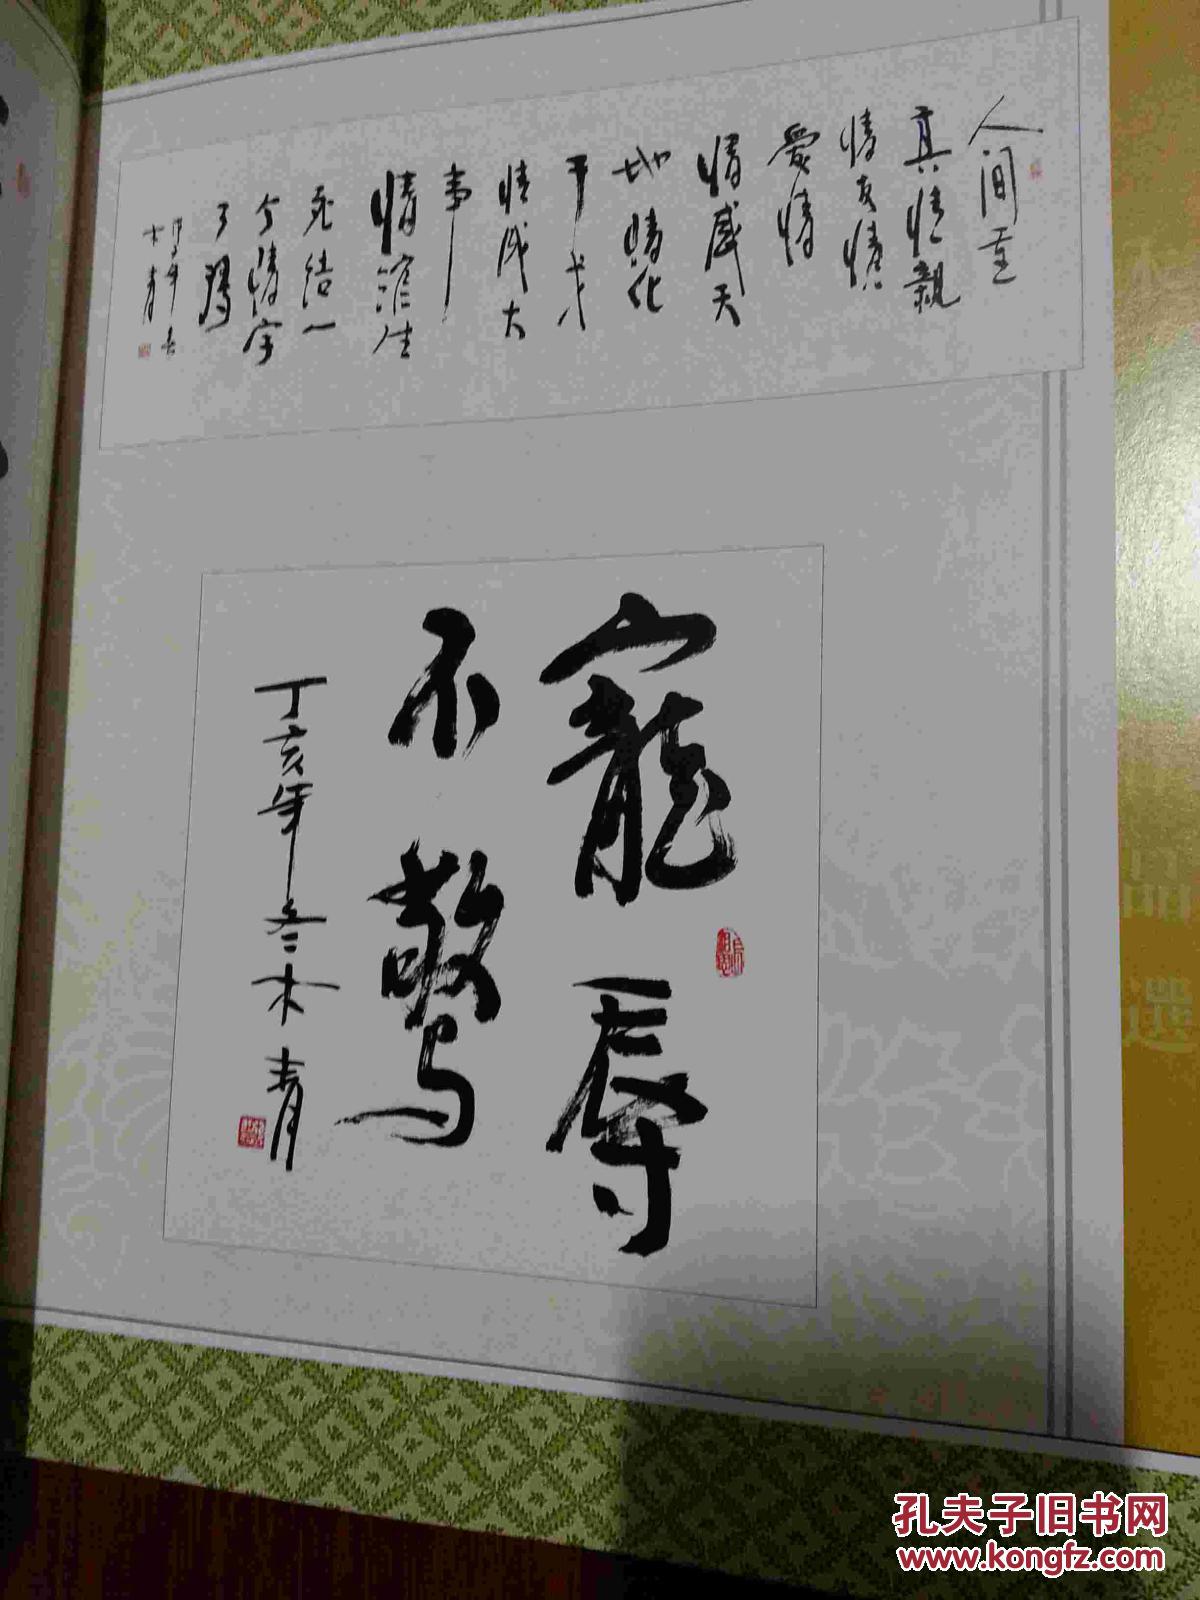 人间至
真情親
情友情
愛情
情感天
地情化
干戈
情成大
事
情生
死结一
个情字
了
木青
寵辱
不驚
丁亥年冬木青
孔夫子旧书网
www.kongfz.com